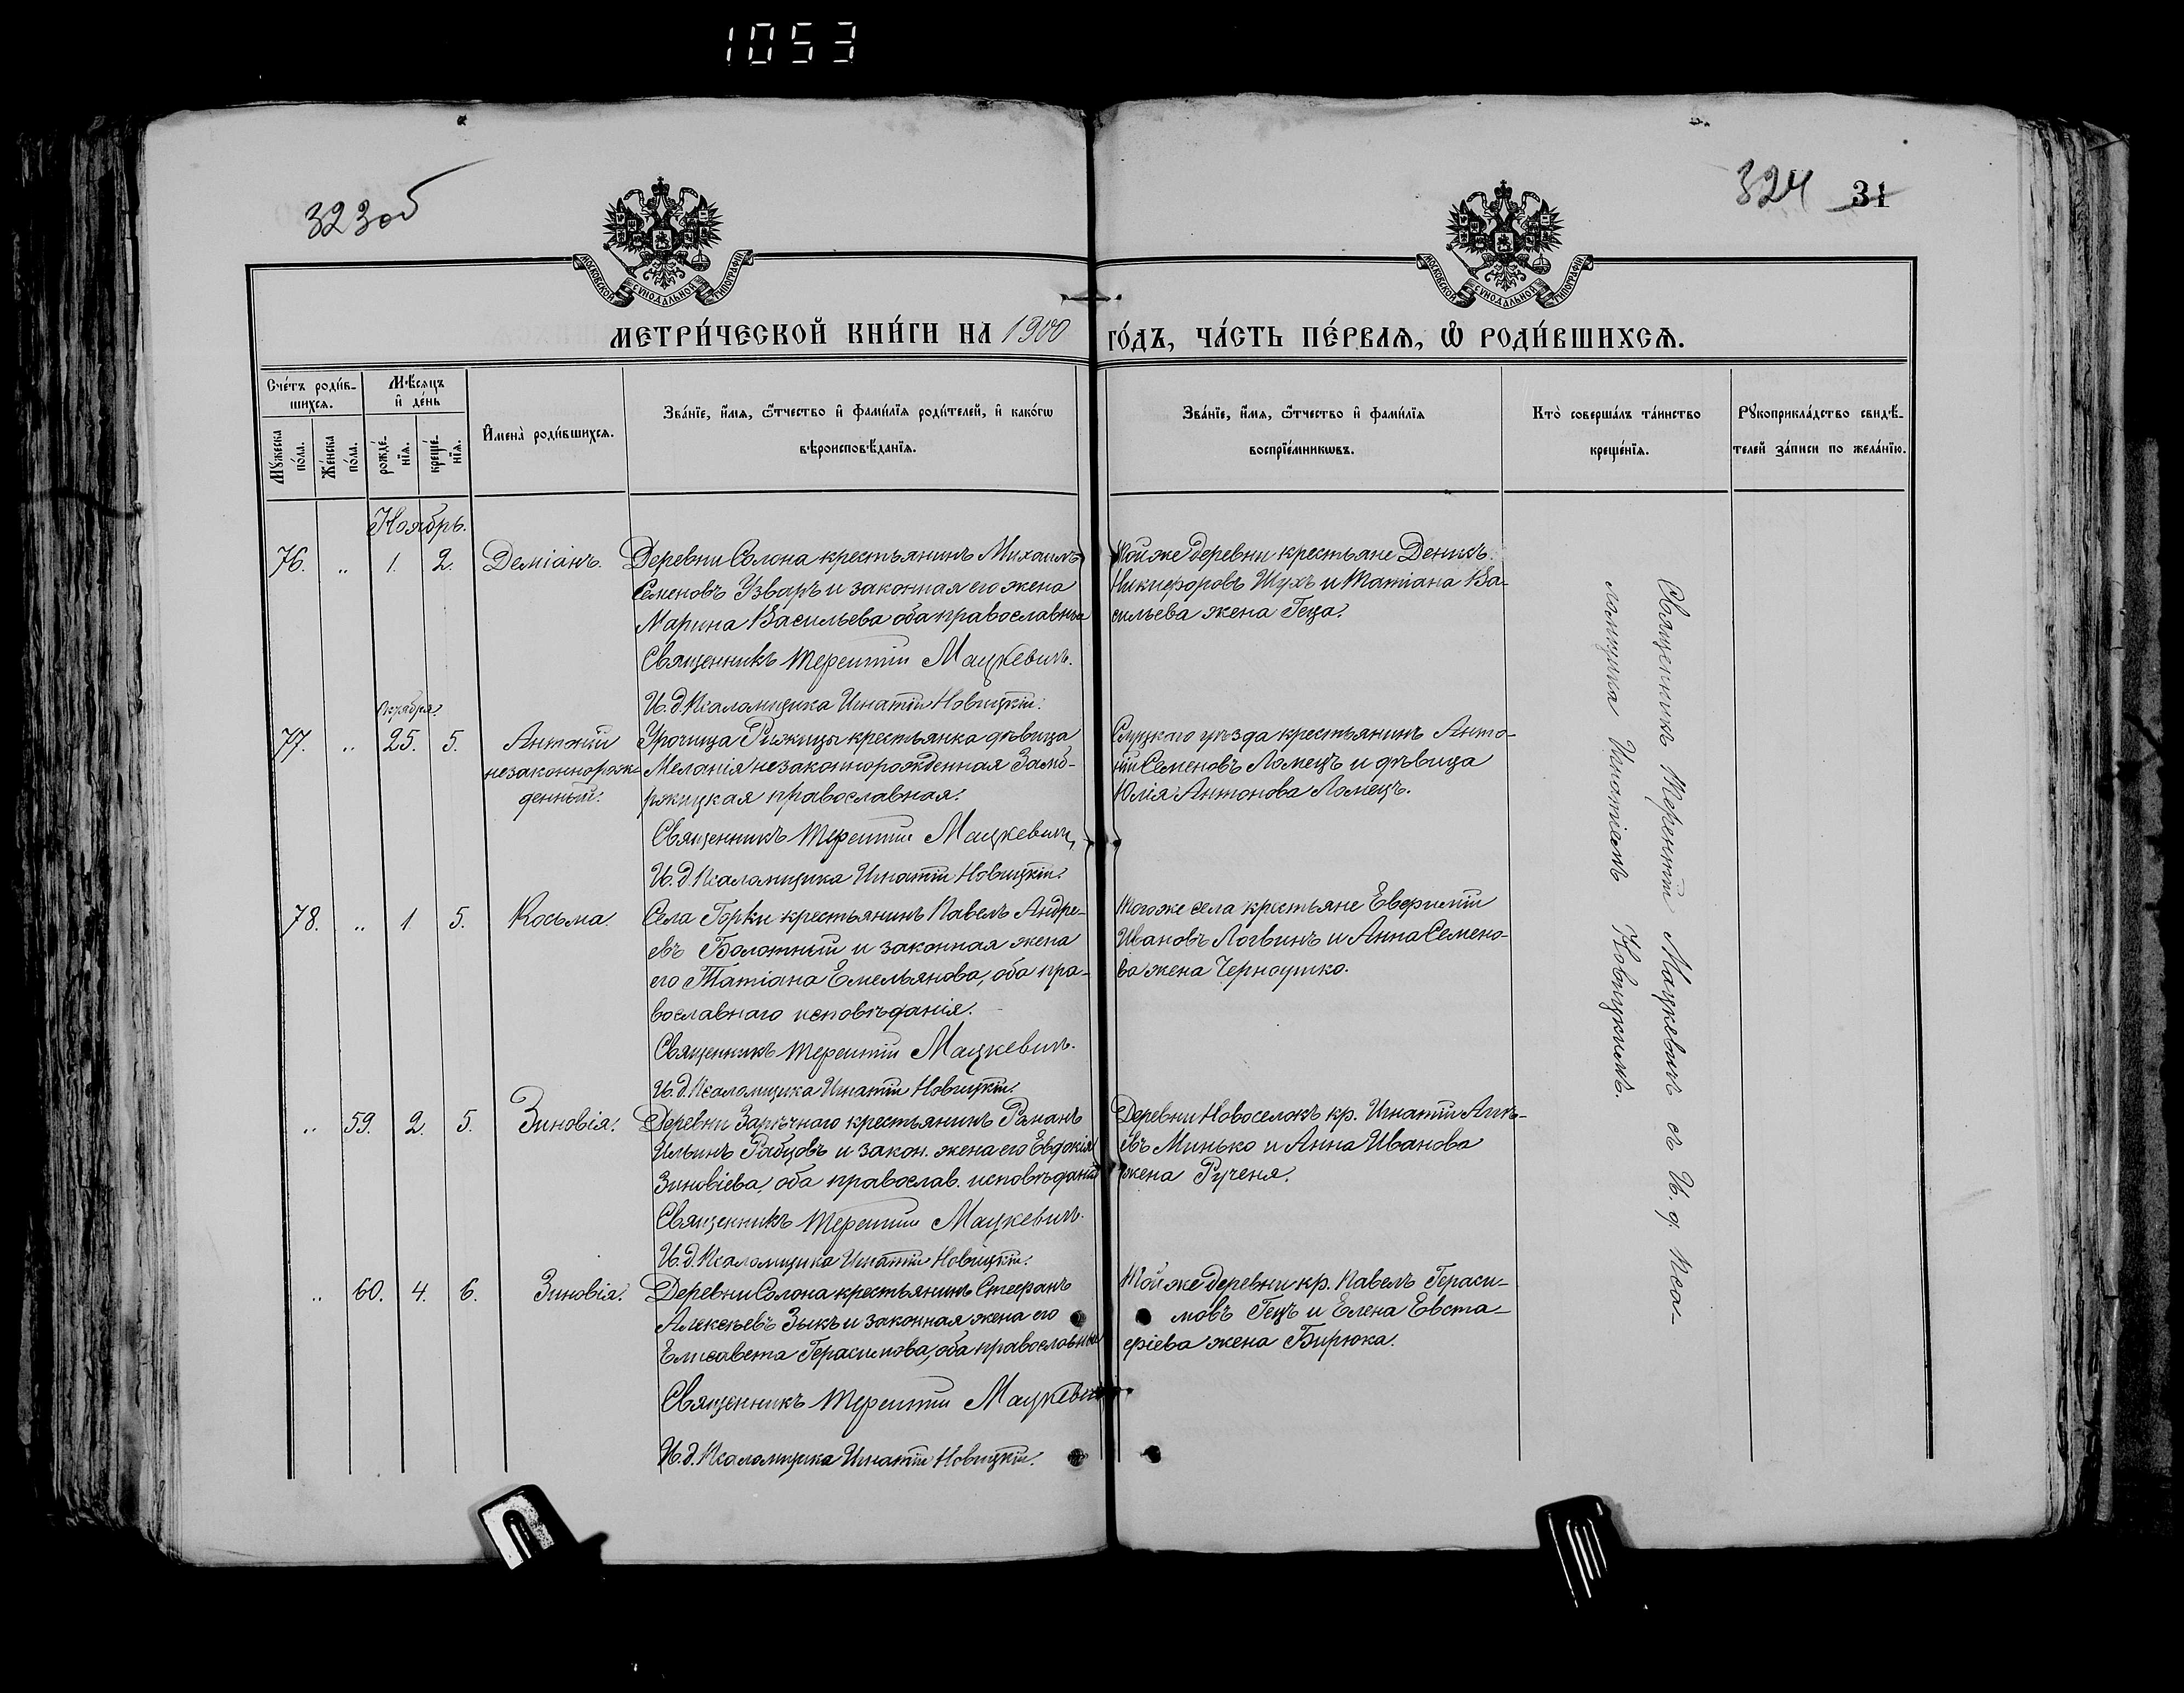 1053
323об
324 31
МОСКОВСКОЙ СУНОДАЛЬНОЙ ТИПОГРАФІИ
МОСКОВСКОЙ СУНОДАЛЬНОЙ ТИПОГРАФІИ
МЕТРИ́ЧЕСКОЙ КНИ́ГИ НА 1900 ГО́ДЪ, ЧА́СТЬ ПЕ́РВАѦ, Ѡ҆ РОДИ́ВШИХСѦ.
Сче́тъ роди́в-
шихсѧ.
Мꙋ́жеска по́ла.
Же́нска по́ла.
Мѣ́сяцъ и҆ де́нь
рожде́-
нїѧ.
креще́-
нїѧ.
И҆мена̀ роди́вшихсѧ.
Зва́нїе, и҆́мѧ, ѻ҆́тчество и҆ фами́лїѧ роди́телей, и҆ како́гѡ
вѣроисповѣ́данїѧ.
Зва́нїе, и҆́мѧ, ѻ҆́тчество и҆ фами́лїѧ
воспрїе́мникѡвъ.
Кто̀ соверша́лъ та́инство
креще́нїѧ.
Рꙋкоприкла́дство свидѣ́-
телей за́писи по жела́нїю.
Ноябрь.
76. „ 1. 2. Деміанъ.
Деревни Солона крестьянинъ Михаилъ
Семеновъ Узваръ и законная его жена
Марина Васильева оба православные
Священникъ Терентій Мацкевичъ.
И. д. Псаломщика Игнатій Новицкій.
Той же деревни крестьяне Денисъ
Никифоровъ Шухъ и Татіана Ва-
сильева жена Геца.
Октября.
77. „ 25. 5. Антоній
незаконнорож-
денный.
Урочища Рижицы крестьянка дѣвица
Меланія незаконнорожденная Замб-
ржицкая православная.
Священникъ Терентій Мацкевичъ
И. д. Псаломщика Игнатій Новицкій.
Слуцкаго уѣзда крестьянинъ Анто-
ній Семеновъ Ломецъ и дѣвица
Юлія Антонова Ломецъ.
78. „ 1 5. Косьма.
Села Горки крестьянинъ Павелъ Андре-
евъ Болотный и законная жена
его Татіана Емельянова, оба пра-
вославнаго исповѣданія.
Священникъ Терентій Мацкевичъ.
И. д. Псаломщика Игнатій Новицкій.
Того же села крестьяне Евфимій
Ивановъ Логвинъ и Анна Семено-
ва жена Черноушко.
„ 59. 2. 5. Зиновія.
Деревни Зарѣчнаго крестьянинъ Романъ
Ильинъ Рабцовъ и закон. жена его Евдокія
Зиновіева, оба православ. исповѣданія
Священникъ Терентій Мацкевичъ.
И. д. Псаломщика Игнатій Новицкій.
Деревни Новоселокъ кр. Игнатій Алек-
евъ Минько и Анна Иванова
жена Рученя.
„ 60. 4. 6. Зиновія.
Деревни Солона крестьянинъ Стефанъ
Алексѣевъ Зыкъ и законная жена его
Елисавета Герасимова, оба православные
Священникъ Терентій Мацкевичъ
И. д. Псаломщика Игнатій Новицкій.
Той же деревни кр. Павелъ Гераси-
мовъ Гецъ и Елена Евста-
фіева жена Бирюка.
Священникъ Терентій Мацкевичъ съ И. д. Пса-
ломщика Игнатіемъ Новицкимъ.